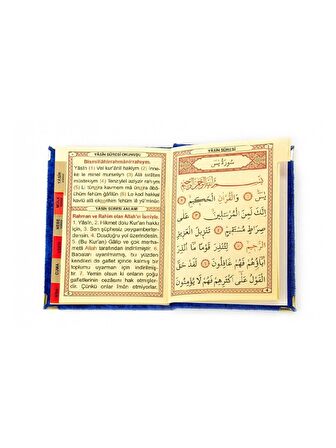 YÂSİN SÛRESİ OKUNUŞU
Bismillâhirrahmânirrahîym.
Yâsîn (1) Vel kur'ânil hakîym (2) İnne-
ke le minel murselyn (3) Alâ sırâtım
müstekıym (4) Tenziylel aziyzir rahıym
(5) Li tünzira kavmem mâ ünzira âbâ-
ühüm fehüm ğâfilûn (6) Le kad hakkal
kavlü alâ ekserihim fehüm lâ yü'minûn
YÂSİN SÛRESİ ANLAMI
Rahman ve Rahim olan Allah'ın İsmiyle.
1. Yâsîn, 2. Hikmet dolu Kur'an hakkı
için, 3. Sen şüphesiz peygamberler-
densin, 4. Dosdoğru yol üzerindesin.
5. (Bu Kur'an) Gâlip ve çok merha-
metli Allah tarafından indirilmiştir. 6.
Babaları uyarılmamış, bu yüzden
kendileri de gaflet içinde kalmış bir
toplumu uyarman için indirilmiş-
tir. 7. Yemin olsun ki onların çoğu
gafletlerinin cezasını hak etmişler-
dir. Çünkü onlar îmân etmiyorlar.
YÂSİN SÛRESİ
سُورَةُ يٰسٓ
بِسْمِ اللّٰهِ الرَّحْمٰنِ الرَّحِيمِ
يٰسٓ ﴿١﴾ وَالْقُرْاٰنِ الْحَكِيمِ ﴿٢﴾
اِنَّكَ لَمِنَ الْمُرْسَلِينَ ﴿٣﴾ عَلٰى
صِرَاطٍ مُسْتَقِيمٍ ﴿٤﴾ تَنْزِيلَ الْعَزِيزِ
الرَّحِيمِ ﴿٥﴾ لِتُنْذِرَ قَوْمًا مَا اُنْذِرَ
اٰبَاؤُهُمْ فَهُمْ غَافِلُونَ ﴿٦﴾ لَقَدْ حَقَّ
الْقَوْلُ عَلٰى اَكْثَرِهِمْ فَهُمْ لَا يُؤْمِنُونَ
YÂSİN